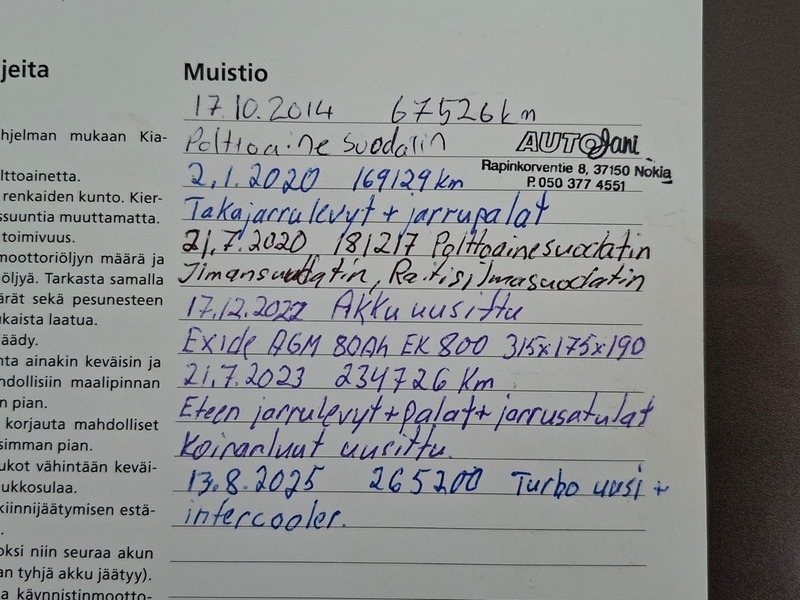 jeita
hjelman mukaan Kia-
lttoainetta.
renkaiden kunto. Kier-
ssuuntia muuttamatta.
toimivuus.
moottoriöljyn määrä ja
öljyä. Tarkasta samalla
ärät sekä pesunesteen
ukaista laatua.
äädy.
nta ainakin keväisin ja
hdollisiin maalipinnan
n pian.
korjauta mahdolliset
simman pian.
ukot vähintään keväi-
ukkosulaa.
kiinnijäätymisen estä-
.
oksi niin seuraa akun
an tyhjä akku jäätyy).
a käynnistinmootto-
Muistio
17.10.2014 67526 km
Polttoaine suodatin
AUTOJani
Rapinkorventie 8, 37150 Nokia
P. 050 377 4551
2.1.2020 169129 km
Takajarrulevyt + jarrupalat
21.7.2020 181217 Polttoainesuodatin
Ilmansuodatin, Raitisilmasuodatin
17.12.2022 Akku uusittu
Exide AGM 80Ah EK 800 315x175x190
21.7.2023 234726 Km
Eteen jarrulevyt + palat + jarrusatulat
Koiranluut uusittu.
13.8.2025 265200 Turbo uusi +
intercooler.